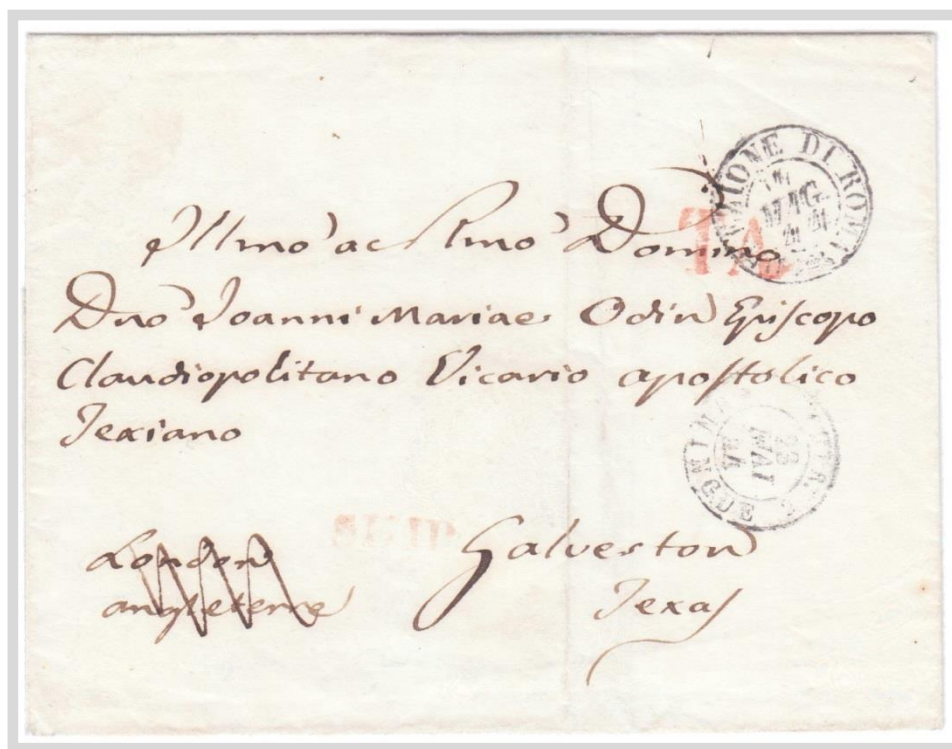 DIREZIONE DI ROMA
MAG.
TA
Illmo ac Rmo Domino
Dno Joanni Mariae Odin Episcopo
Claudiopolitano Vicario apostolico
Texiano
28
MAI
SHIP
London
angleterre
Galveston
Texas